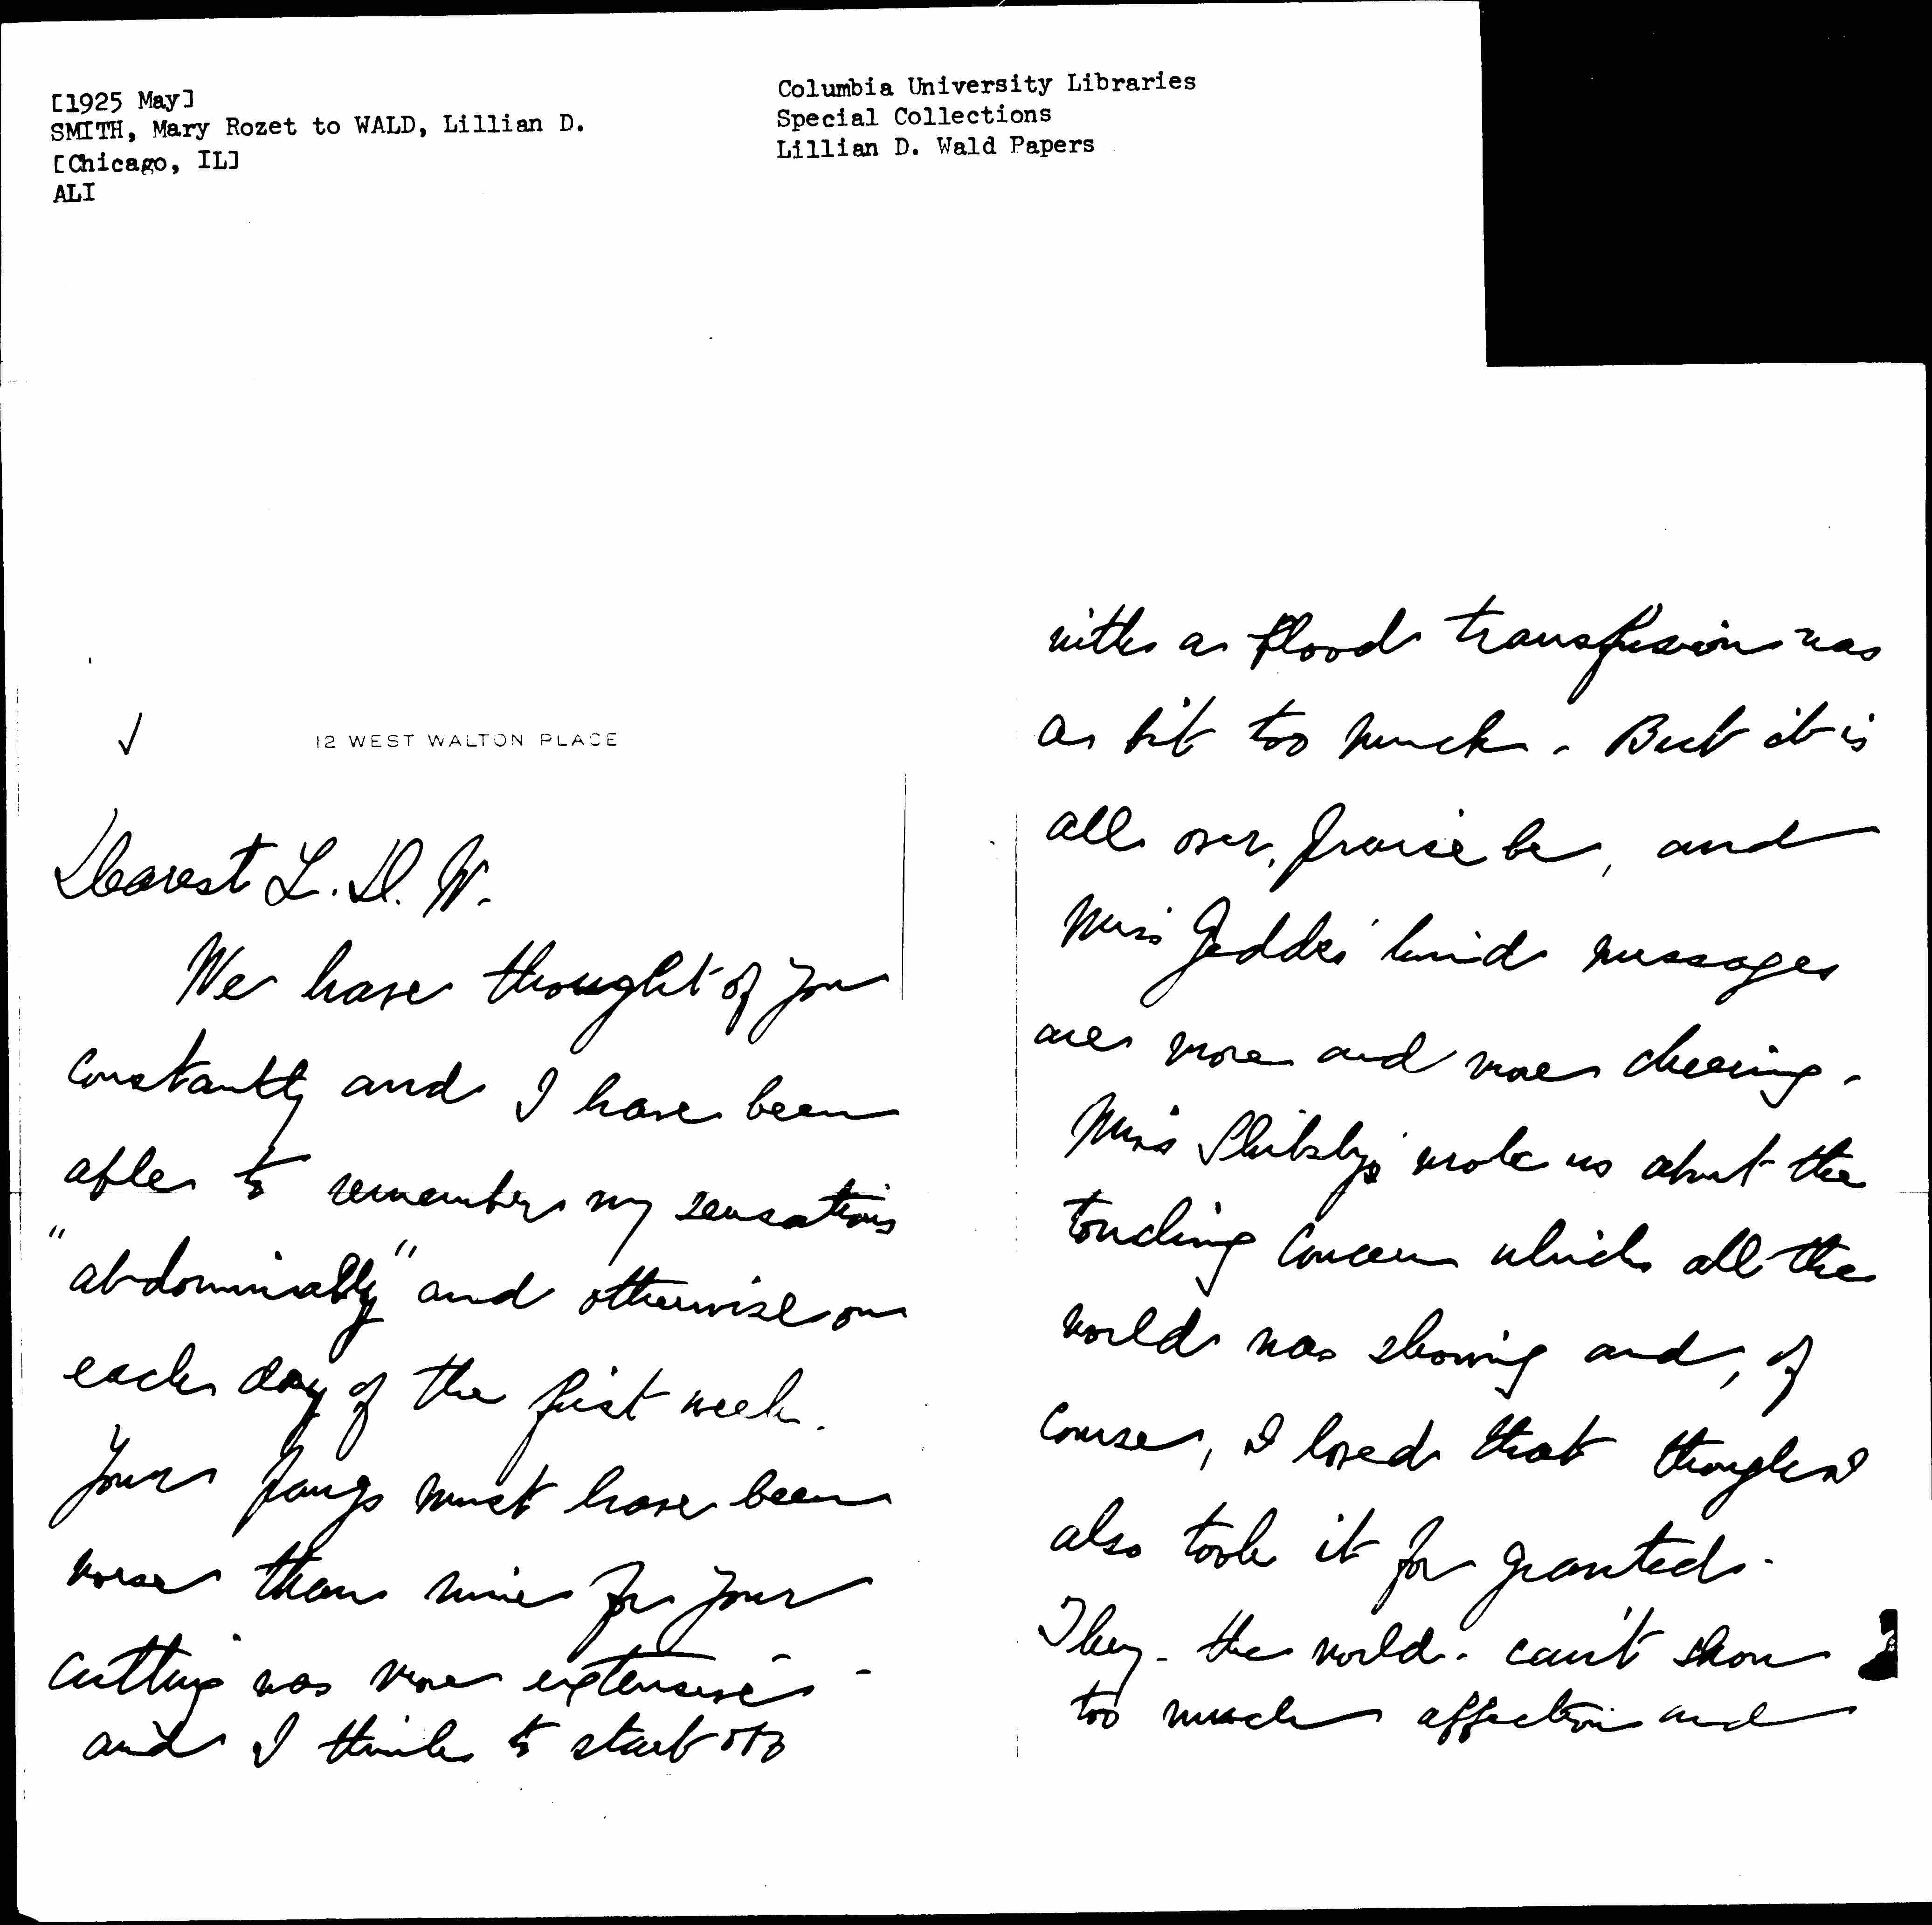 [1925 May]
SMITH, Mary Rozet to WALD, Lillian D.
[Chicago, IL]
ALI
Columbia University Libraries
Special Collections
Lillian D. Wald Papers
✓
12 WEST WALTON PLACE
Dearest L. D. W.
We have thought of you
constantly and I have been
able to remember my sensations
"abdominally" and otherwise on
each day of the first week.
Your pangs must have been
worse than mine for your
cutting was more extensive -
and I think to start off
with a blood transfusion was
a bit too much. But it is
all over, praise be, and
Miss Geddes' kind messages
are more and more cheering.
Miss wrote us about the
touching concern which all the
world was showing and, of
course, I loved that though I
also took it for granted.
They - the world - can't show
too much affection and